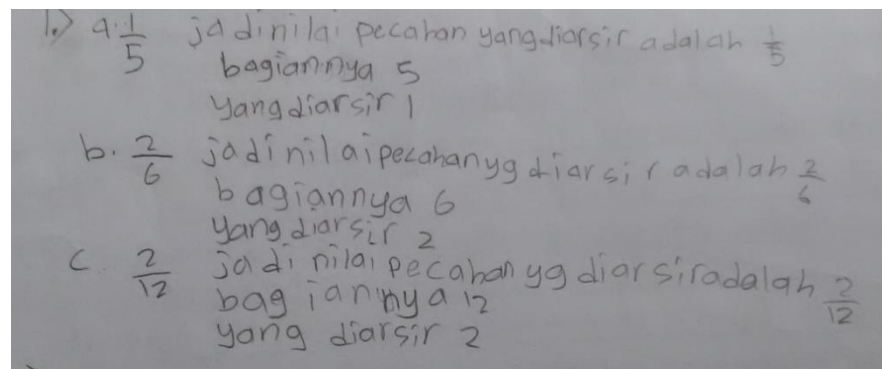 1.) a. 1/5 jadi nilai pecahan yang diarsir adalah 1/5
bagiannya 5
yang diarsir 1
b. 2/6 jadi nilai pecahan yg diarsir adalah 2/6
bagiannya 6
yang diarsir 2
c. 2/12 jadi nilai pecahan yg diarsir adalah 2/12
bagiannya 12
yang diarsir 2